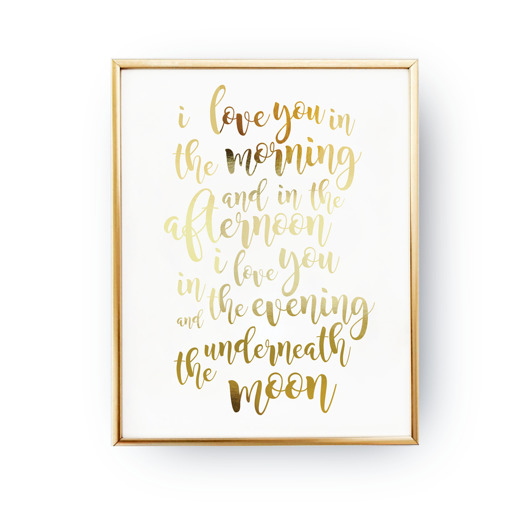 i love you in
the morning
and in the
afternoon
i love you
in the evening
and underneath
the moon